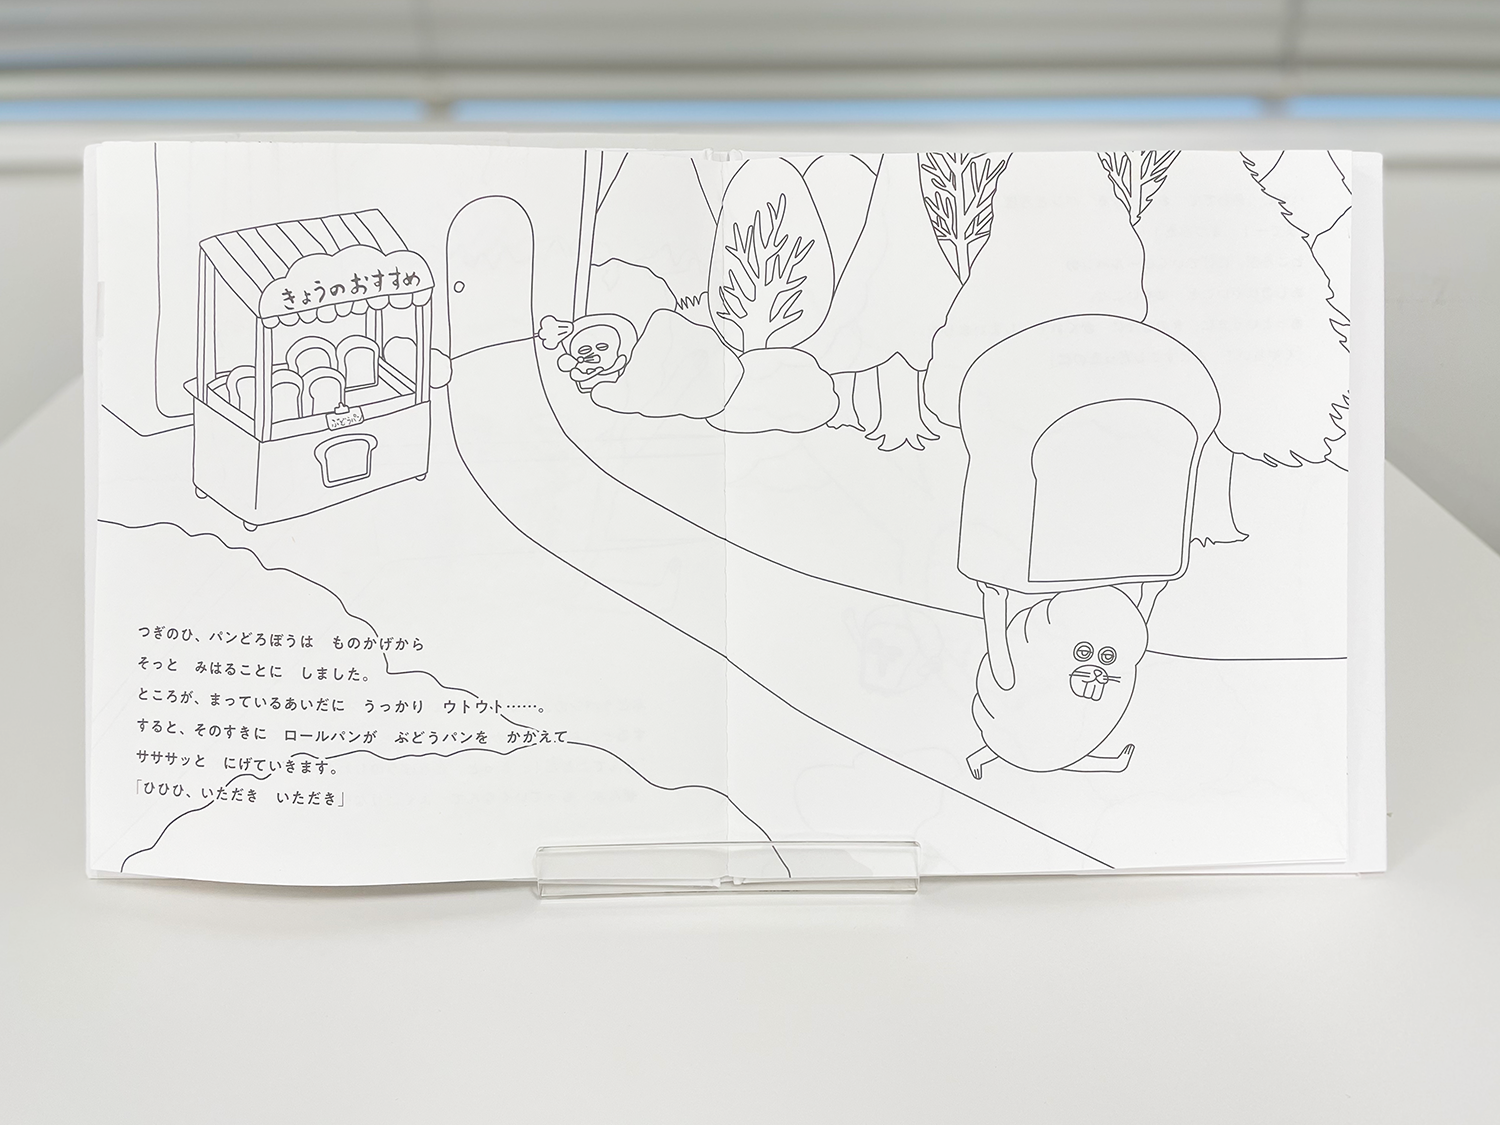 きょうのおすすめ
ぶどうパン
つぎのひ、パンどろぼうは　ものかげから
そっと　みはることに　しました。
ところが、まっているあいだに　うっかり　ウトウト……。
すると、そのすきに　ロールパンが　ぶどうパンを　かかえて
サササッと　にげていきます。
「ひひひ、いただき　いただき」